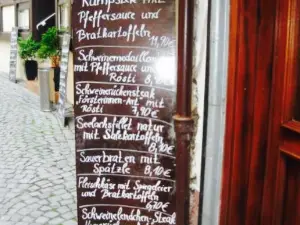 Rumpsteak mit
Pfeffersauce und
Bratkartoffeln
11,90€
Schweinemedaillon
mit Pfeffersauce und
Rösti 8,
Schweinerückensteak
"Försterinnen-Art" mit
Rösti 7,90€
Seelachsfilet natur
mit Salzkartoffeln
8,10€
Sauerbraten mit
Spätzle 8,10€
Fleischkäse mit Spiegeleier
und Bratkartoffeln
6,70€
Schweinelendchen-Steak